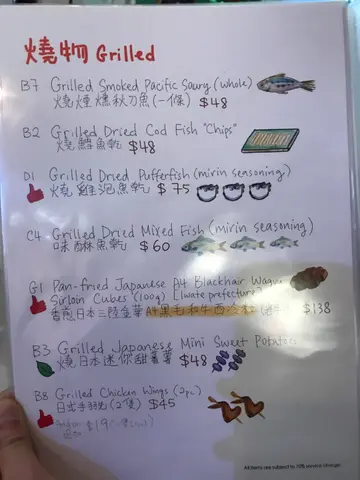 燒物 Grilled
B7 Grilled Smoked Pacific Saury (whole)
燒煙燻秋刀魚(一條) $48
B2 Grilled Dried Cod Fish "Chips"
燒鱈魚乾 $48
D1 Grilled Dried Pufferfish (mirin seasoning)
燒雞泡魚乾 $75
C4 Grilled Dried Mixed Fish (mirin seasoning)
味醂魚乾 $60
G1 Pan-fried Japanese A4 Blackhair Wagyu
Sirloin Cubes (100g) [Iwate prefecture]
香煎日本三陸金華A4黑毛和牛西冷粒 $138
B3 Grilled Japanese Mini Sweet Potatoes
燒日本迷你甜蕃薯 $48
B8 Grilled Chicken Wings (2pc)
日式手羽先(2隻) $45
$19
All items are subject to 10% service charge.